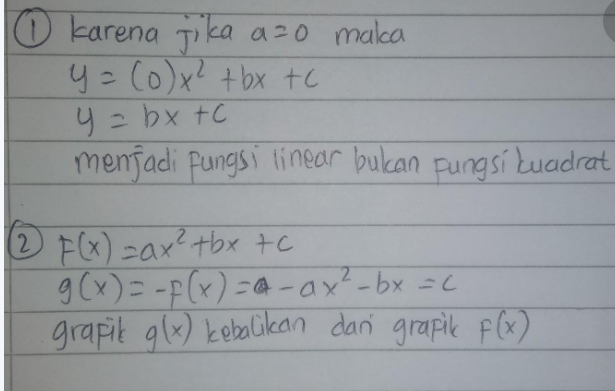 ① karena jika a=0 maka
y = (0)x² + bx + c
y = bx + c
menjadi fungsi linear bukan fungsi kuadrat
② F(x) = ax² + bx + c
g(x) = -f(x) = - ax² - bx = c
grafik g(x) kebalikan dari grafik f(x)